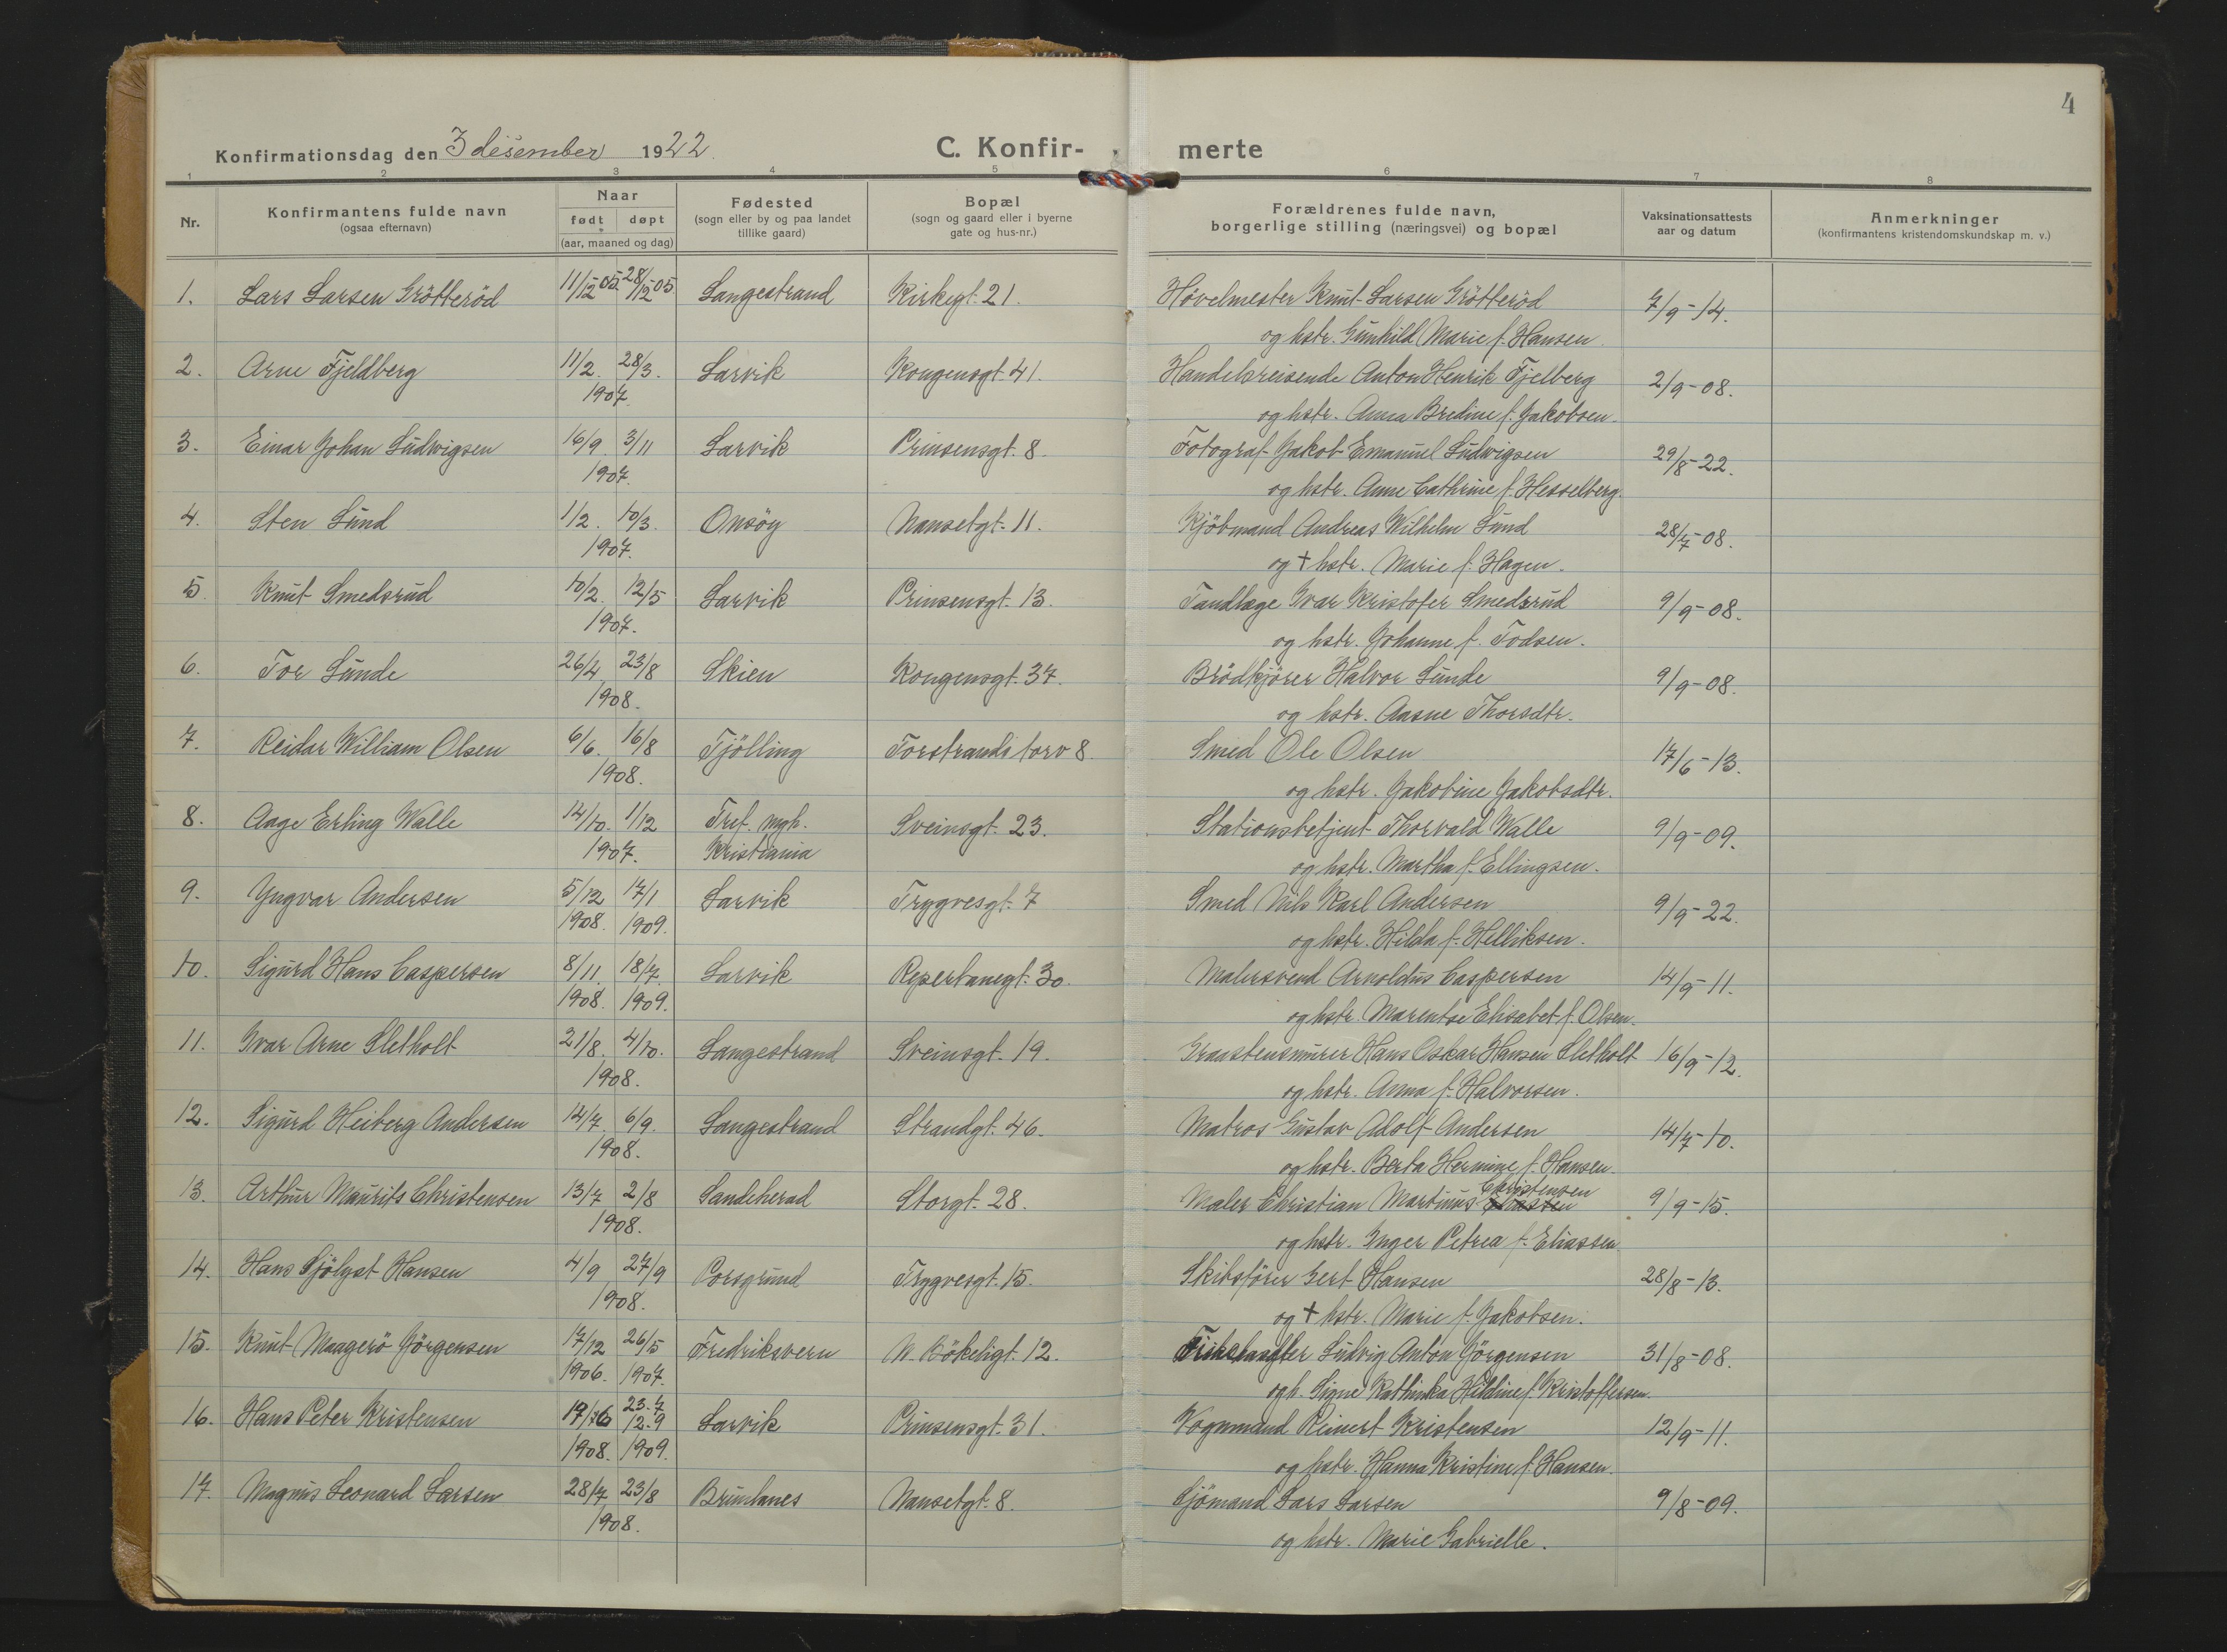 4
Konfirmationsdag den 3 desember 1922.
C. Konfir- merte
1 2 3 4 5 6 7 8
Nr.
Konfirmantens fulde navn
(ogsaa efternavn)
Naar
født døpt
(aar, maaned og dag)
Fødested
(sogn eller by og paa landet
tillike gaard)
Bopæl
(sogn og gaard eller i byerne
gate og hus-nr.)
Forældrenes fulde navn,
borgerlige stilling (næringsvei) og bopæl
Vaksinationsattests
aar og datum
Anmerkninger
(konfirmantens kristendomskundskap m. v.)
1. Lars Larsen Grötteröd 11/12 05. 28/12 05 Langestrand Kirkegt. 21. Hövelmester Knut Larsen Grötteröd 7/9-14.
og hstr. Gunhild Marie f. Hansen.
2. Arne Fjeldberg 11/2. 28/3. Larvik Kongensgt. 41. Handelsreisende Anton Henrik Fjelberg 2/9-08.
1907. og hstr. Anna Bredine f. Jakobsen.
3. Einar Johan Ludwigsen 16/9. 3/11 Larvik Prinsensgt. 8. Fotograf Jakob Emanuel Ludwigsen 29/8-22.
1907. og hstr. Anne Cathrine f. Hesselberg.
4. Sten Lund 1/2. 10/3. Onsöy Nansetgt. 11. Kjöbmand Andreas Wilhelm Lund 28/7-08.
1907. og + hstr. Marie f. Hagen.
5. Knut Smedsrud 10/2. 12/5 Larvik Prinsensgt. 13. Tandlæge Ivar Kristofer Smedsrud 9/9-08.
1907. og hstr. Johanne f. Todsen.
6. Tor Lunde 26/4 23/8 Skien Kongensgt. 37. Brödkjörer Halvor Lunde 9/9-08.
1908. og hstr. Aasne Thorsdtr.
7. Reidar William Olsen 6/6. 16/8 Tjölling Torstrands torv 8. Smed Ole Olsen 17/6-13.
1908. og hstr. Jakobine Jakobsdtr.
8. Aage Erling Walle 14/10. 1/12 Tref. mgh. Sveinsgt. 23. Stationsbetjent Thorvald Walle 9/9-09.
1907. Kristiania og hstr. Martha f. Ellingsen.
9. Yngvar Andersen 5/12 17/1 Larvik Trygvesgt. 7 Smed Nils Karl Andersen 9/9-22.
1908. 1909. og hstr. Hilda f. Helliksen.
10. Sigurd Hans Caspersen 8/11. 18/7. Larvik Reperbanegt. 30. Malersvend Arnoldus Caspersen 14/9-11.
1908. 1909. og hstr. Marentse Elisabet f. Olsen.
11. Ivar Arne Sletholt 21/8. 4/10. Langestrand Sveinsgt. 19. Graastensmurer Hans Oskar Hansen Sletholt 16/9-12.
1908. og hstr. Anna f. Halvorsen.
12. Sigurd Heiberg Andersen 14/7. 6/9. Langestrand Strandgt. 46. Matros Gustav Adolf Andersen 14/7-10.
1908. og hstr. Berta Hermine f. Hansen.
13. Arthur Maurits Christensen 13/7 2/8 Sandeherad Storgt. 28. Maler Christian Martinus Christensen 9/9-15.
1908. og hstr. Inger Petrea f. Eliassen
14. Hans Sjölyst Hansen 4/9 27/9 Porsgrund Trygvesgt. 15. Skibsförer Gert Hansen 28/8-13.
1908. og + hstr. Marie f. Jakobsen.
15. Knut Maagerö Jörgensen 17/12 26/5 Fredriksvern N. Bökeligt. 12. Ludvig Anton Jörgensen 31/8-08.
1906. 1907. og h. Signe Kathinka Hildine f. Kristoffersen.
16. Hans Peter Kristensen Larvik Prinsensgt. 31. Vognmand Reinert Kristensen 12/9-11.
1908. 1909. og hstr. Hanna Kristine f. Hansen.
17. Magnus Leonard Larsen 28/7 23/8 Brunlanes Nansetgt. 8. Sjömand Lars Larsen 9/8-09.
1908. og hstr. Marie Gabrielle.